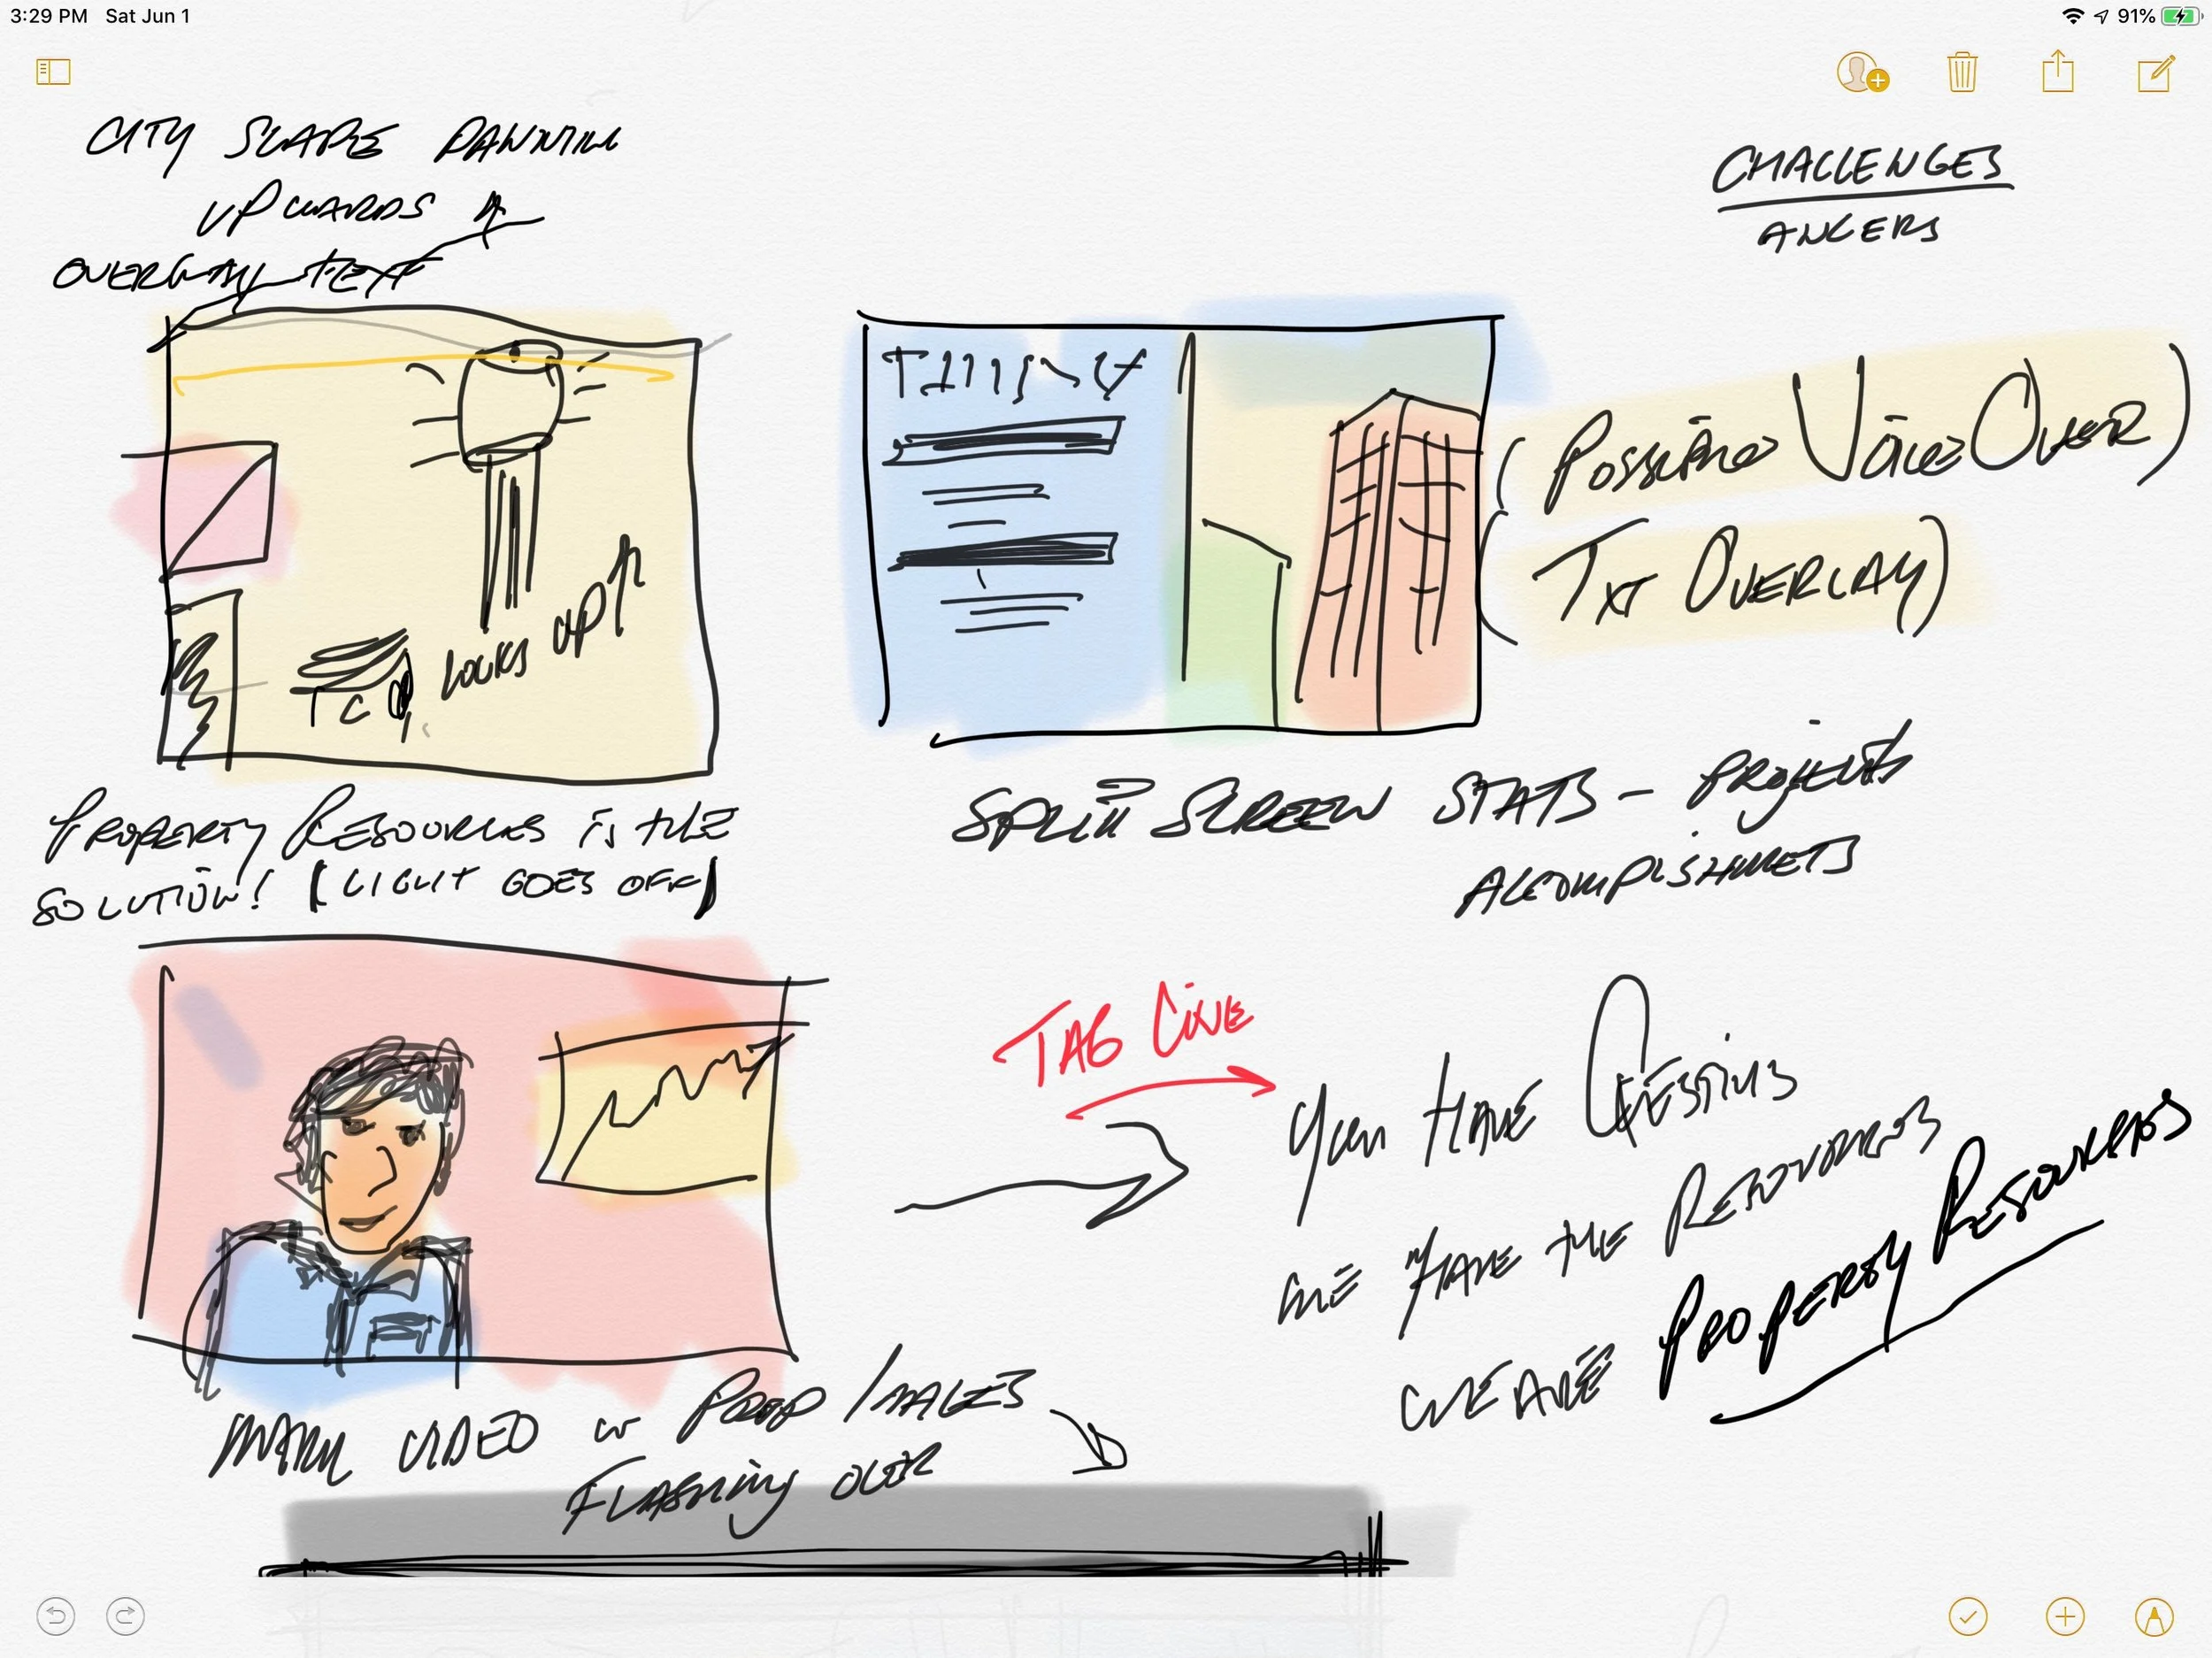 3:29 PM Sat Jun 1
91%
CITY SCAPE PANNING
UPWARDS
OVERLAY TEXT
CHALLENGES
ANGERS
LOOKS UP
(POSSIBLE VOICE OVER)
(TXT OVERLAY)
PROPERTY RESOURCES IS THE
SOLUTION! (LIGHT GOES OFF)
SPLIT SCREEN STATS - PROJECTS
ACOMPLISHMETS
TAG LINE
YOU HAVE QUESTIONS
WE HAVE THE RESOURCES
WE ARE PROPERTY RESOURCES
MARK VIDEO W PROP IMAGES
FLASHING OVER